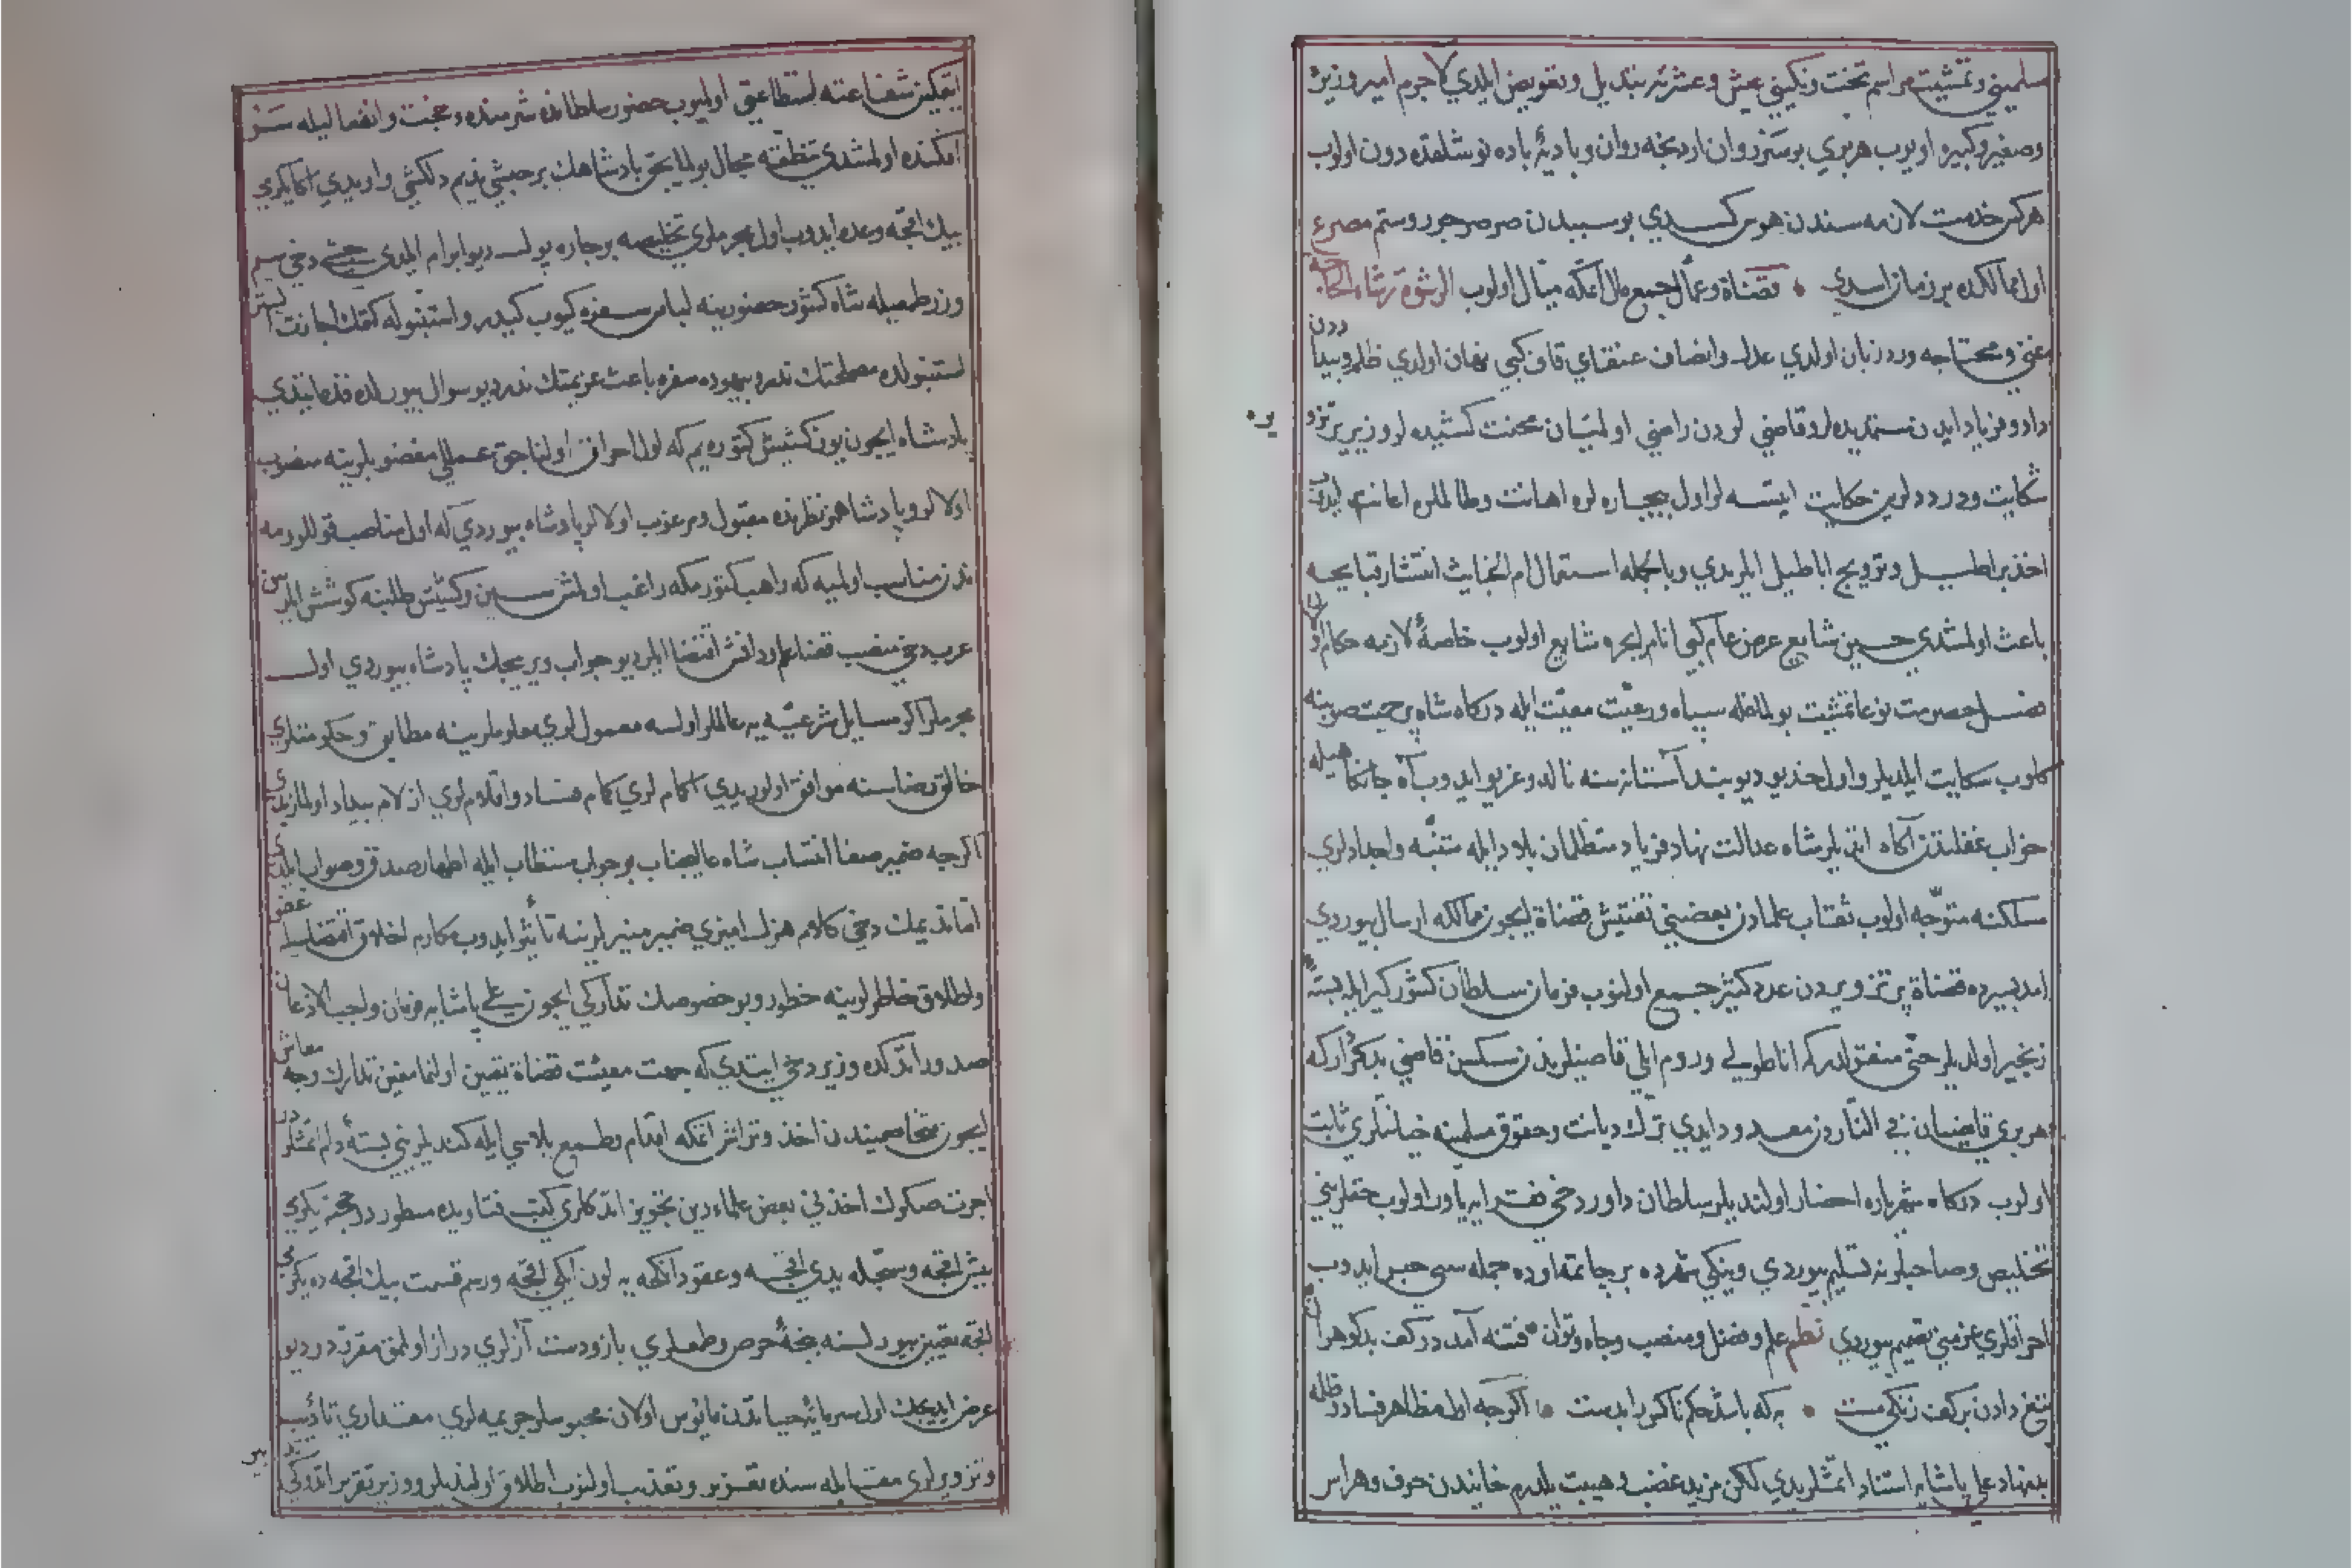 مسلمیني وتمشیت مراسم تخت ونكیني عیش وعشرته تبدیل وتفویض ایلدي لاجرم امیر ووزیر
وصغیر وكبیر اویوب هر بري بوسنوروان اردنجه روان وبادیۀ باده نوشلقده دون اولوب
هركس خدمت لازمه سندن هوس كسدي بوسببدن صرصر جور وستم مصرع
اول ممالكده بر زمان اسدي قضاة وعمال جمیع مال اتمكه میال اولوب الرشوة
غني ومحتاجه ورد زبان اولدي عدل وانصاف عنقاي قاف كبي نهان اولدي ظلم وبیداددن
داد وفریاد ایدن ستمدیده لر وقاضي لردن راضي اولمیان محنت كشیده لر وزیر پر تزویره
شكایت ودرد دلرین حكایت ایتسه لر اول بیچاره لره اهانت وظالملره اعانت ایدوب
اخذ براطیل وترویج اباطیل ایلریدي وبالجمله استعمال ام الخبایث انتشار قبایحه
باعث اولمشدي حسین شایع عرض عام كبي انام ایچره شایع اولوب خاصۀ لازمه حكام اولان
فصل خصومت نوعا تمشیت بولماغله سپاه ورعیت معیت ایله دركاه شاه پر حمیت صوبینه
كلوب شكایت ایلدیلر واول خدیو دیوبند آستانه سنه ناله وغریو ایدوب آه جانكاهیله
خواب غفلتدن آكاه ایتدیلر شاه عدالت نهاد فریاد متظلمان بلاد ایله متنبه واجدادلري
مسلكنه متوجه اولوب ثقات علمادن بعضیني تفتیش قضاة ایچون ممالكه ارسال بیوردي
اندبیرده قضاة پر تزویردن عدد كثیر جمع اولنوب فرمان سلطان كشوركیر ایله بستۀ
زنجیر اولدیلر حتی منقولدر كه اناطولي وروم ایلي قاضیلریندن سكسن قاضي بدكردار كه
هر بري قاضیان في النار دن معدود ایدي ترك دیانت وحقوق مسلمینه خیانتلري ثابت
اولوب دركاه شهریاره احضار اولندیلر سلطان داور دخي فقرایه یاور اولوب حقلریني
تخلیص وصاحبلرینه تسلیم بیوردي ویكي شهرده بر جامه اوده جمله سني حبس ایدوب
احراقلري عزمني تصمیم بیوردي نظم علم وفضل ومنصب وجاه وتوان فتنه آمد در كف بدكوهران
تیغ دادن بر كف زنكي مست به كه باشد حكم ناكس را بدست اكرچه اول مظاهر فساد وظلمه
بدنهاد علي پاشایه استناد اتمشلریدي لكن مزید غضب وهیبت یلدرم خانیدن خوف وهراس
اتمكین شفاعته استطاعتی اولمیوب حضور سلطانده شرمنده ومحنت وانفعالیله سر
افكنده اولمشدي تنطقه مجال بولمایجق پادشاهك بر حبشي ندیم دلكشي وار ایدي اكا یكرمي
بیك اقچه وعده ایدوب اول مجرملري تخلیصه بر چاره بولـ دیو ابرام ایلدي حبشي دخي سیم
وزر طمعیله شاه كشور حضورینه لباس سفره كیوب كیدر واستنبوله كتمك اجازت استر
استنبولده مصلحتك ندر وبیهوده سفره باعث عزیمتك ندر دیو سوال بیورلدقده ندیم ایتدي
پادشاه ایچون یوز كشیش كتوره یم كه اول احراق اولناجق عمللي مغضوبلرینه منصوب
اولالر وپادشاهم نظرنده مقبول ومرغوب اولالر پادشاه بیوردي كه اول مناصب قوللرومه
ندن مناسب اولمیه كه راهب كتورمكه راغب اولمشسین وكشیش طلبنه كوشش ایلرسن
عرب دخي منصب قضا علم ودانش اقتضا ایلر دیو جواب ویریجك پادشاه بیوردي اول
مجرملر اكر مسایل شرعیه یه عالملر اولسه معمول لري معلوملرینه مطابق وحكومتلري
خالق رضاسنه موافق اولوریدي احكام لري كام فساد واقلام لري ازلام بیداد اولمازیدي
اكرچه ضمیر صفا انتساب شاه عالیجناب بر جواب مستطاب ایله اظهار صدق وصواب ایلدي
اما ندیمك دخي كلام هزل امیزي ضمیر منیرلرینه تأثیر ایدوب مكارم اخلاق اقتضاسیله عفو
واطلاق خاطرلرینه خطور وبو خصوصك تداركي ایچون علي پاشایه فرمان واجب الاذعان
صدور اتدكده وزیر دخي ایتدي كه جهت معیشت قضاة تعیین اولنمامغین تدارك وجه معاش
ایچون متخاصمیندن اخذ وتراش اتمكه اقدام وطمع بلاسي ایله كندیلرني بستۀ دام اتمشلردر
اجرت صكوك اخذني بعض علماء دین تجویز اتدكلري كتب فتاویده مسطوردر حجته یكرمي
بیش اقچه وسجله یدي اقچه وعقود انكحه یه اون ایكي اقچه ورسم قسمت بیك اقچه ده یكرمي
اقچه تعیین بیورلسه پنجۀ حرص وطمعلري باز ودست آزلري دراز اولمق مقرردر دیو
عرض ایدیجك اول سرمایۀ حیاتدن مأیوس اولان محبوسلر جریمه لري مقداري تأدیب
وتزویرلري مقابله سنده تعزیر وتعذیب اولنوب اطلاق اولندیلر ووزیر تقریر اتدوكي